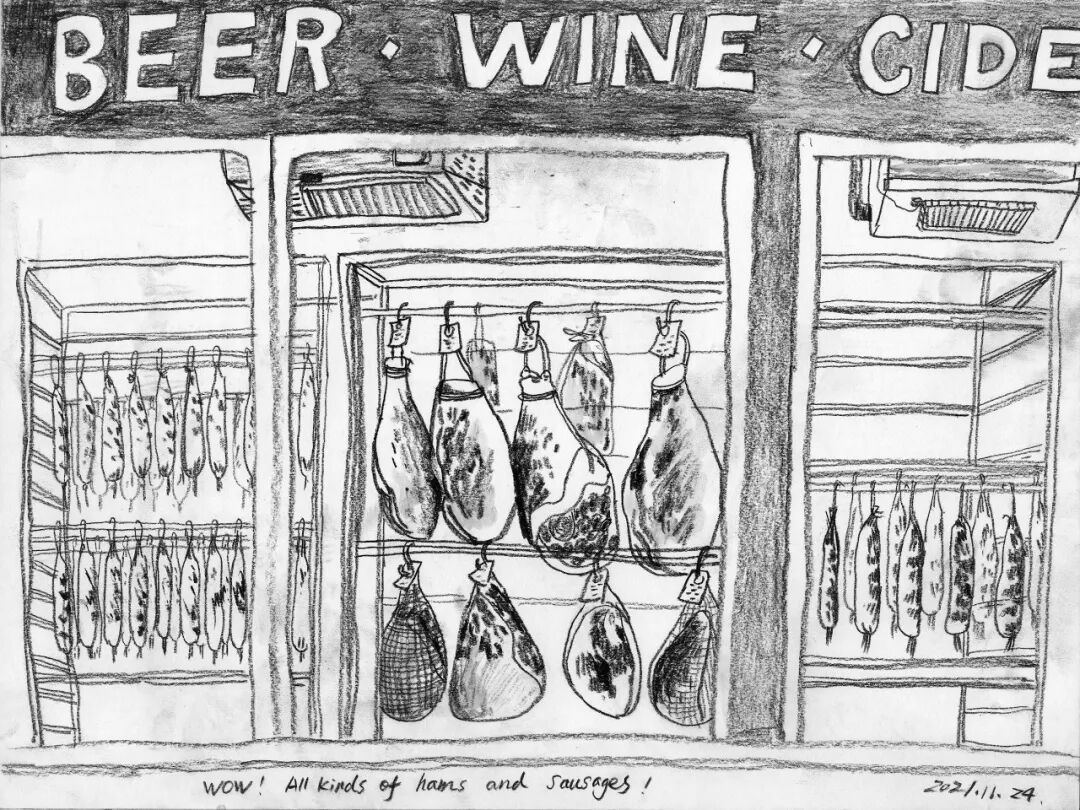 BEER · WINE · CIDE
WOW! All kinds of hams and sausages!
2021.11.24